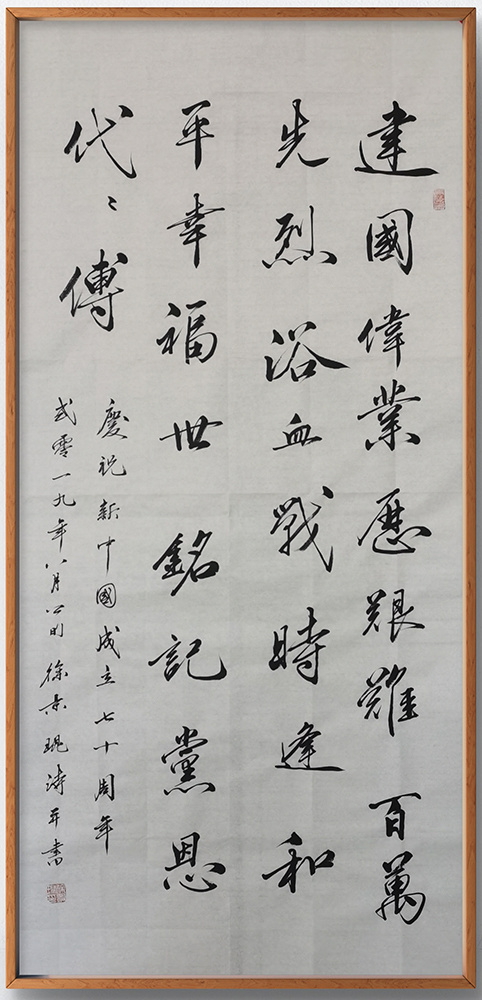 建國偉業歷艱難百萬
先烈浴血戰時逢和
平幸福世銘記黨恩
代〻傳
慶祝新中國成立七十周年
弍零一九年八月 徐 书